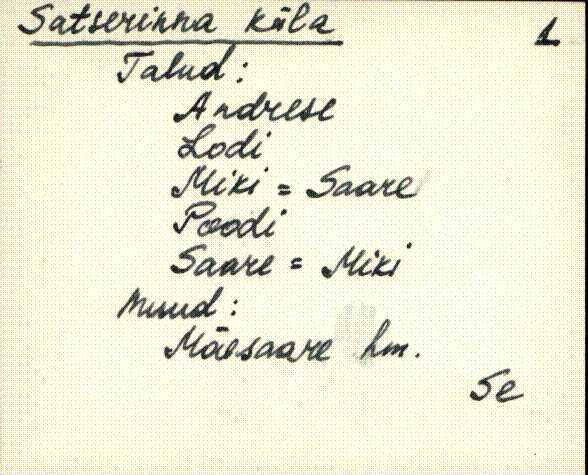 Satserinna küla
1
Talud:
Andrese
Lodi
Miki = Saare
Poodi
Saare = Miki
Muud:
Mäesaare hm.
Se